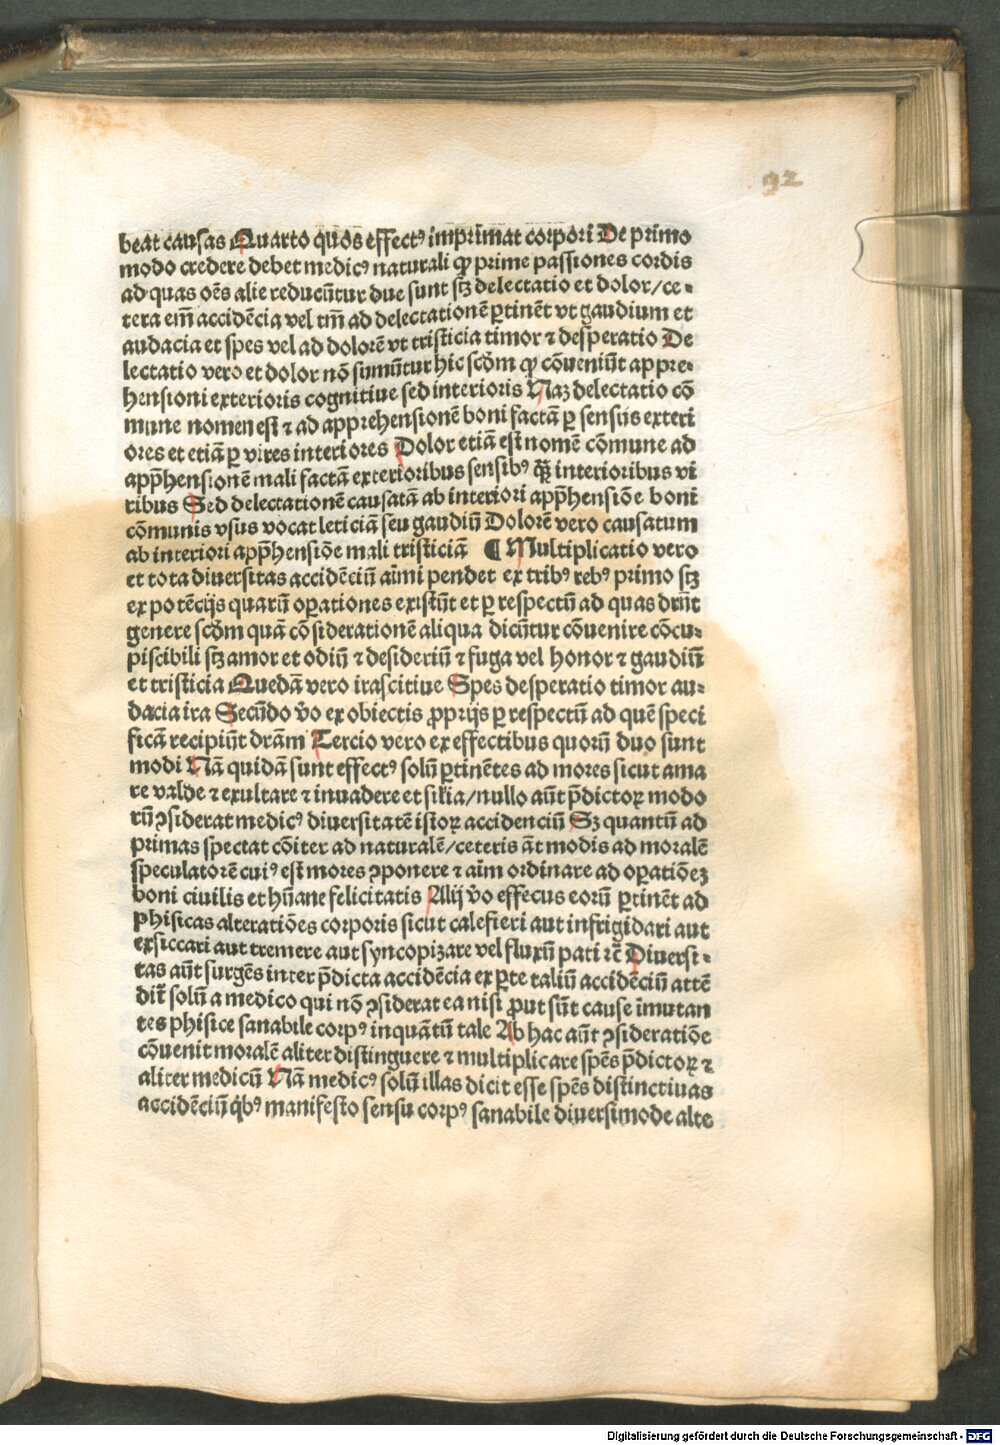 92
beat causas Quarto quos effectꝰ imprimat corpori De primo
modo credere debet medicꝰ naturali ꝙ prime passiones cordis
ad quas oēs alie reducūtur due sunt sꝫ delectatio et dolor/ce⸗
tera em̄ accidēcia vel tm̄ ad delectationē ꝑtinēt vt gaudium et
audacia et spes vel ad dolorē vt tristicia timor ⁊ desperatio De
lectatio vero et dolor nō sumūtur hic scḋm ꝙ cōueniūt appre⸗
hensioni exterioris cognitiue sed interioris Naꝫ delectatio cō
mune nomen est ⁊ ad apprehensionē boni factā ꝑ sensus exteri
ores et etiā ꝑ vires interiores Dolor etiā est nomē cōmune ad
app̄hensionē mali factā exterioribus sensibꝰ ꝙ̄ interioribus vi
ribus Sed delectationē causatā ab interiori app̄hensiōe boni
cōmunis vsus vocat leticiā seu gaudiū Dolorē vero causatum
ab interiori app̄hensiōe mali tristiciā ¶ Multiplicatio vero
et tota diuersitas accidēciū aīmi pendet ex tribꝰ rebꝰ primo sꝫ
ex potēcijs quarū oꝑationes existūt et ꝑ respectū ad quas dr̄nt
genere scḋm quā cōsiderationē aliqua dicūtur cōuenire cōcu⸗
piscibili sꝫ amor et odiū ⁊ desideriū ⁊ fuga vel honor ⁊ gaudiū
et tristicia Quedā vero irascitiue Spes desperatio timor au⸗
dacia ira Secūdo v̊o ex obiectis ꝓprijs ꝑ respectū ad quē speci
ficā recipiūt dr̄am Tercio vero ex effectibus quorū duo sunt
modi Nā quidā sunt effectꝰ solū ꝑtinētes ad mores sicut ama
re valde ⁊ exultare ⁊ inuadere et sil̄ia/nullo aūt p̄dictoꝝ modo
rū ꝯsiderat medicꝰ diuersitatē istoꝝ accidenciū Sꝫ quantū ad
primas spectat cōiter ad naturalē/ceteris āt modis ad moralē
speculatorē cuiꝰ est mores ꝯponere ⁊ aīm ordinare ad oꝑatiōeꝫ
boni ciuilis et hūane felicitatis Alij v̊o effecus eorū ꝑtinēt ad
phisicas alteratiōes corporis sicut calefieri aut infrigidari aut
exsiccari aut tremere aut syncopizare vel fluxū pati ⁊c̄ Diuersi⸗
tas aūt surgēs inter p̄dicta accidēcia ex ꝑte taliū accidēciū attē
dit̄ solū a medico qui nō ꝯsiderat ea nisi ꝓut sūt cause īmutan
tes phisice sanabile corpꝰ inquātū tale Ab hac aūt ꝯsideratiōe
cōuenit moralē aliter distinguere ⁊ multiplicare spēs p̄dictoꝝ ⁊
aliter medicū Nā medicꝰ solū illas dicit esse spēs distinctiuas
accidēciū q̇bꝰ manifesto sensu corpꝰ sanabile diuersimode alte
Digitalisierung gefördert durch die Deutsche Forschungsgemeinschaft - DFG